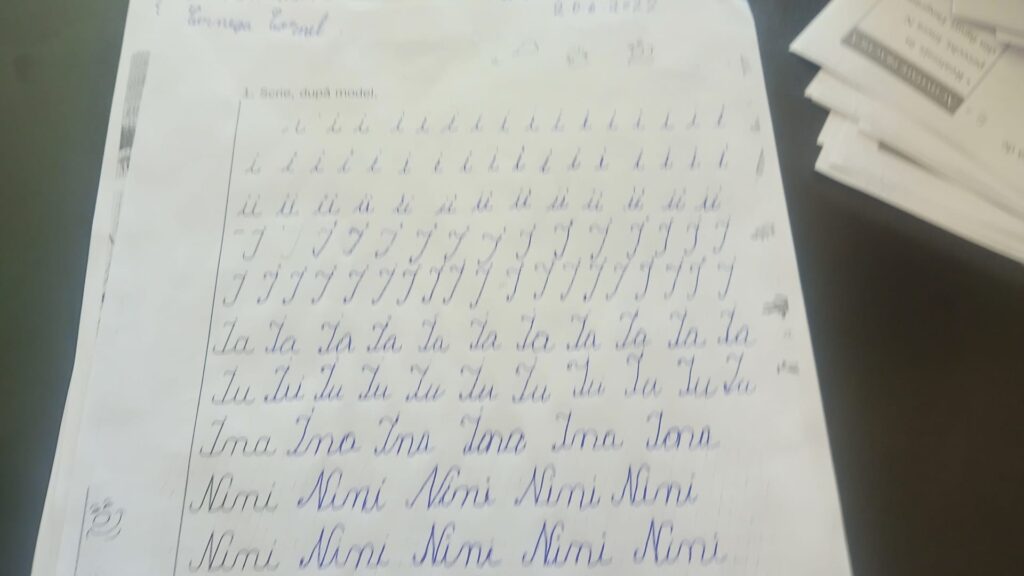 1. Scrie, după model.
i i i i i i i i i i i i i i i i
i i i i i i i i i i i i i i i i i
ii ii ii ii ii ii ii ii ii ii ii ii ii
I I I I I I I I I I I I I I
I I I I I I I I I I I I I I I I I I I
Ia Ia Ia Ia Ia Ia Ia Ia Ia Ia Ia
Iu Iu Iu Iu Iu Iu Iu Iu Iu Iu Iu
Ina Ina Ina Ina Ina Ina
Nini Nini Nini Nini Nini
Nini Nini Nini Nini Nini